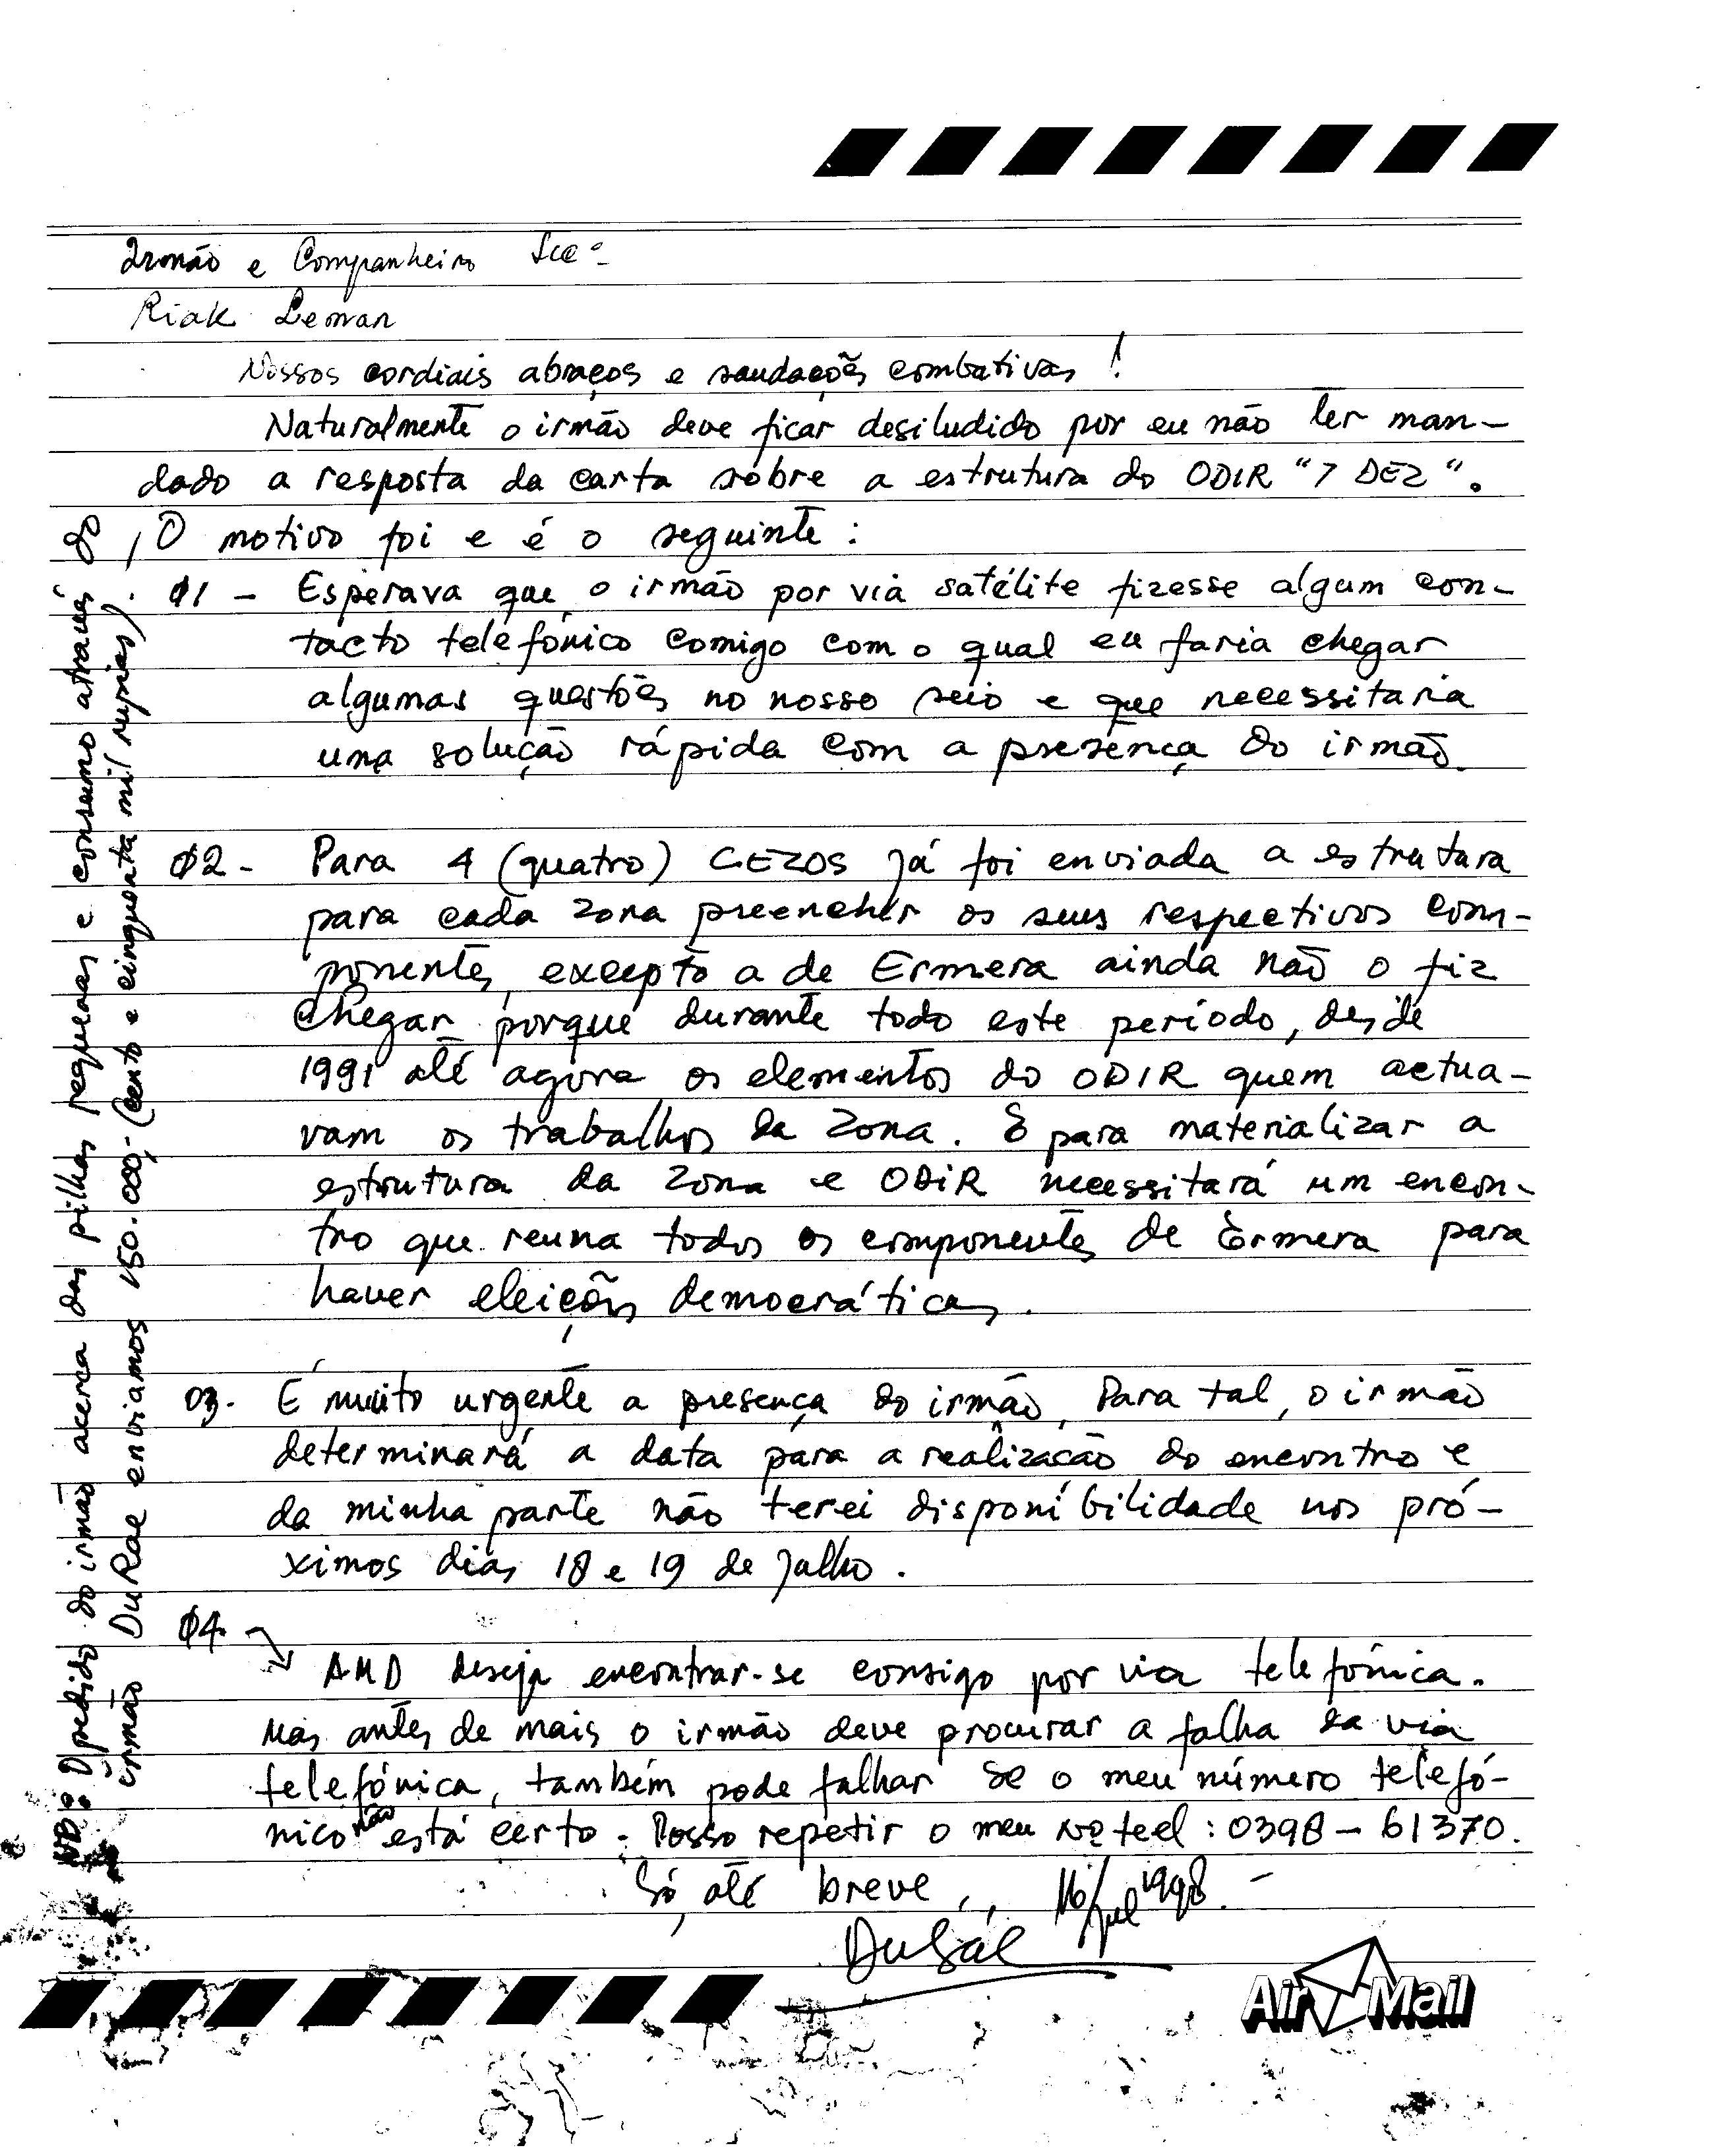 Irmão e Companheiro Sec.
Riak Leman
Nossos cordiais abraços e saudações combativas!
Naturalmente o irmão deve ficar desiludido por eu não ter man-
dado a resposta da carta sobre a estrutura do ODIR "7 DEZ".
O motivo foi e é o seguinte:
01 - Esperava que o irmão por via satélite fizesse algum con-
tacto telefónico comigo com o qual eu faria chegar
algumas questões no nosso seio e que necessitaria
uma solução rápida com a presença do irmão.
02 - Para 4 (quatro) CEZOS já foi enviada a estrutura
para cada zona preencher os seus respectivos com-
ponentes, excepto a de Ermera ainda não o fiz
chegar porque durante todo este período, desde
1991 até agora os elementos do ODIR quem actua-
vam os trabalhos da Zona. E para materializar a
estrutura da Zona e ODIR necessitará um encon-
tro que reuna todos os componentes de Ermera para
haver eleições democráticas.
03. É muito urgente a presença do irmão, Para tal, o irmão
determinará a data para a realização do encontro e
da minha parte não terei disponibilidade nos pró-
ximos dias 18 e 19 de Julho.
04.
AMD deseja encontrar-se consigo por via telefónica.
Mas antes de mais o irmão deve procurar a falha da via
telefónica, também pode falhar se o meu número telefó-
nico não está certo. Posso repetir o meu Nº teel: 0398 - 61370.
Só, até breve, 16/Jul 1998. -
NB: O pedido do irmão acerca das pilhas pequenas e consumo através do
irmão DuRae enviamos 150.000,- (cento e cinquenta mil rupias).
Air Mail